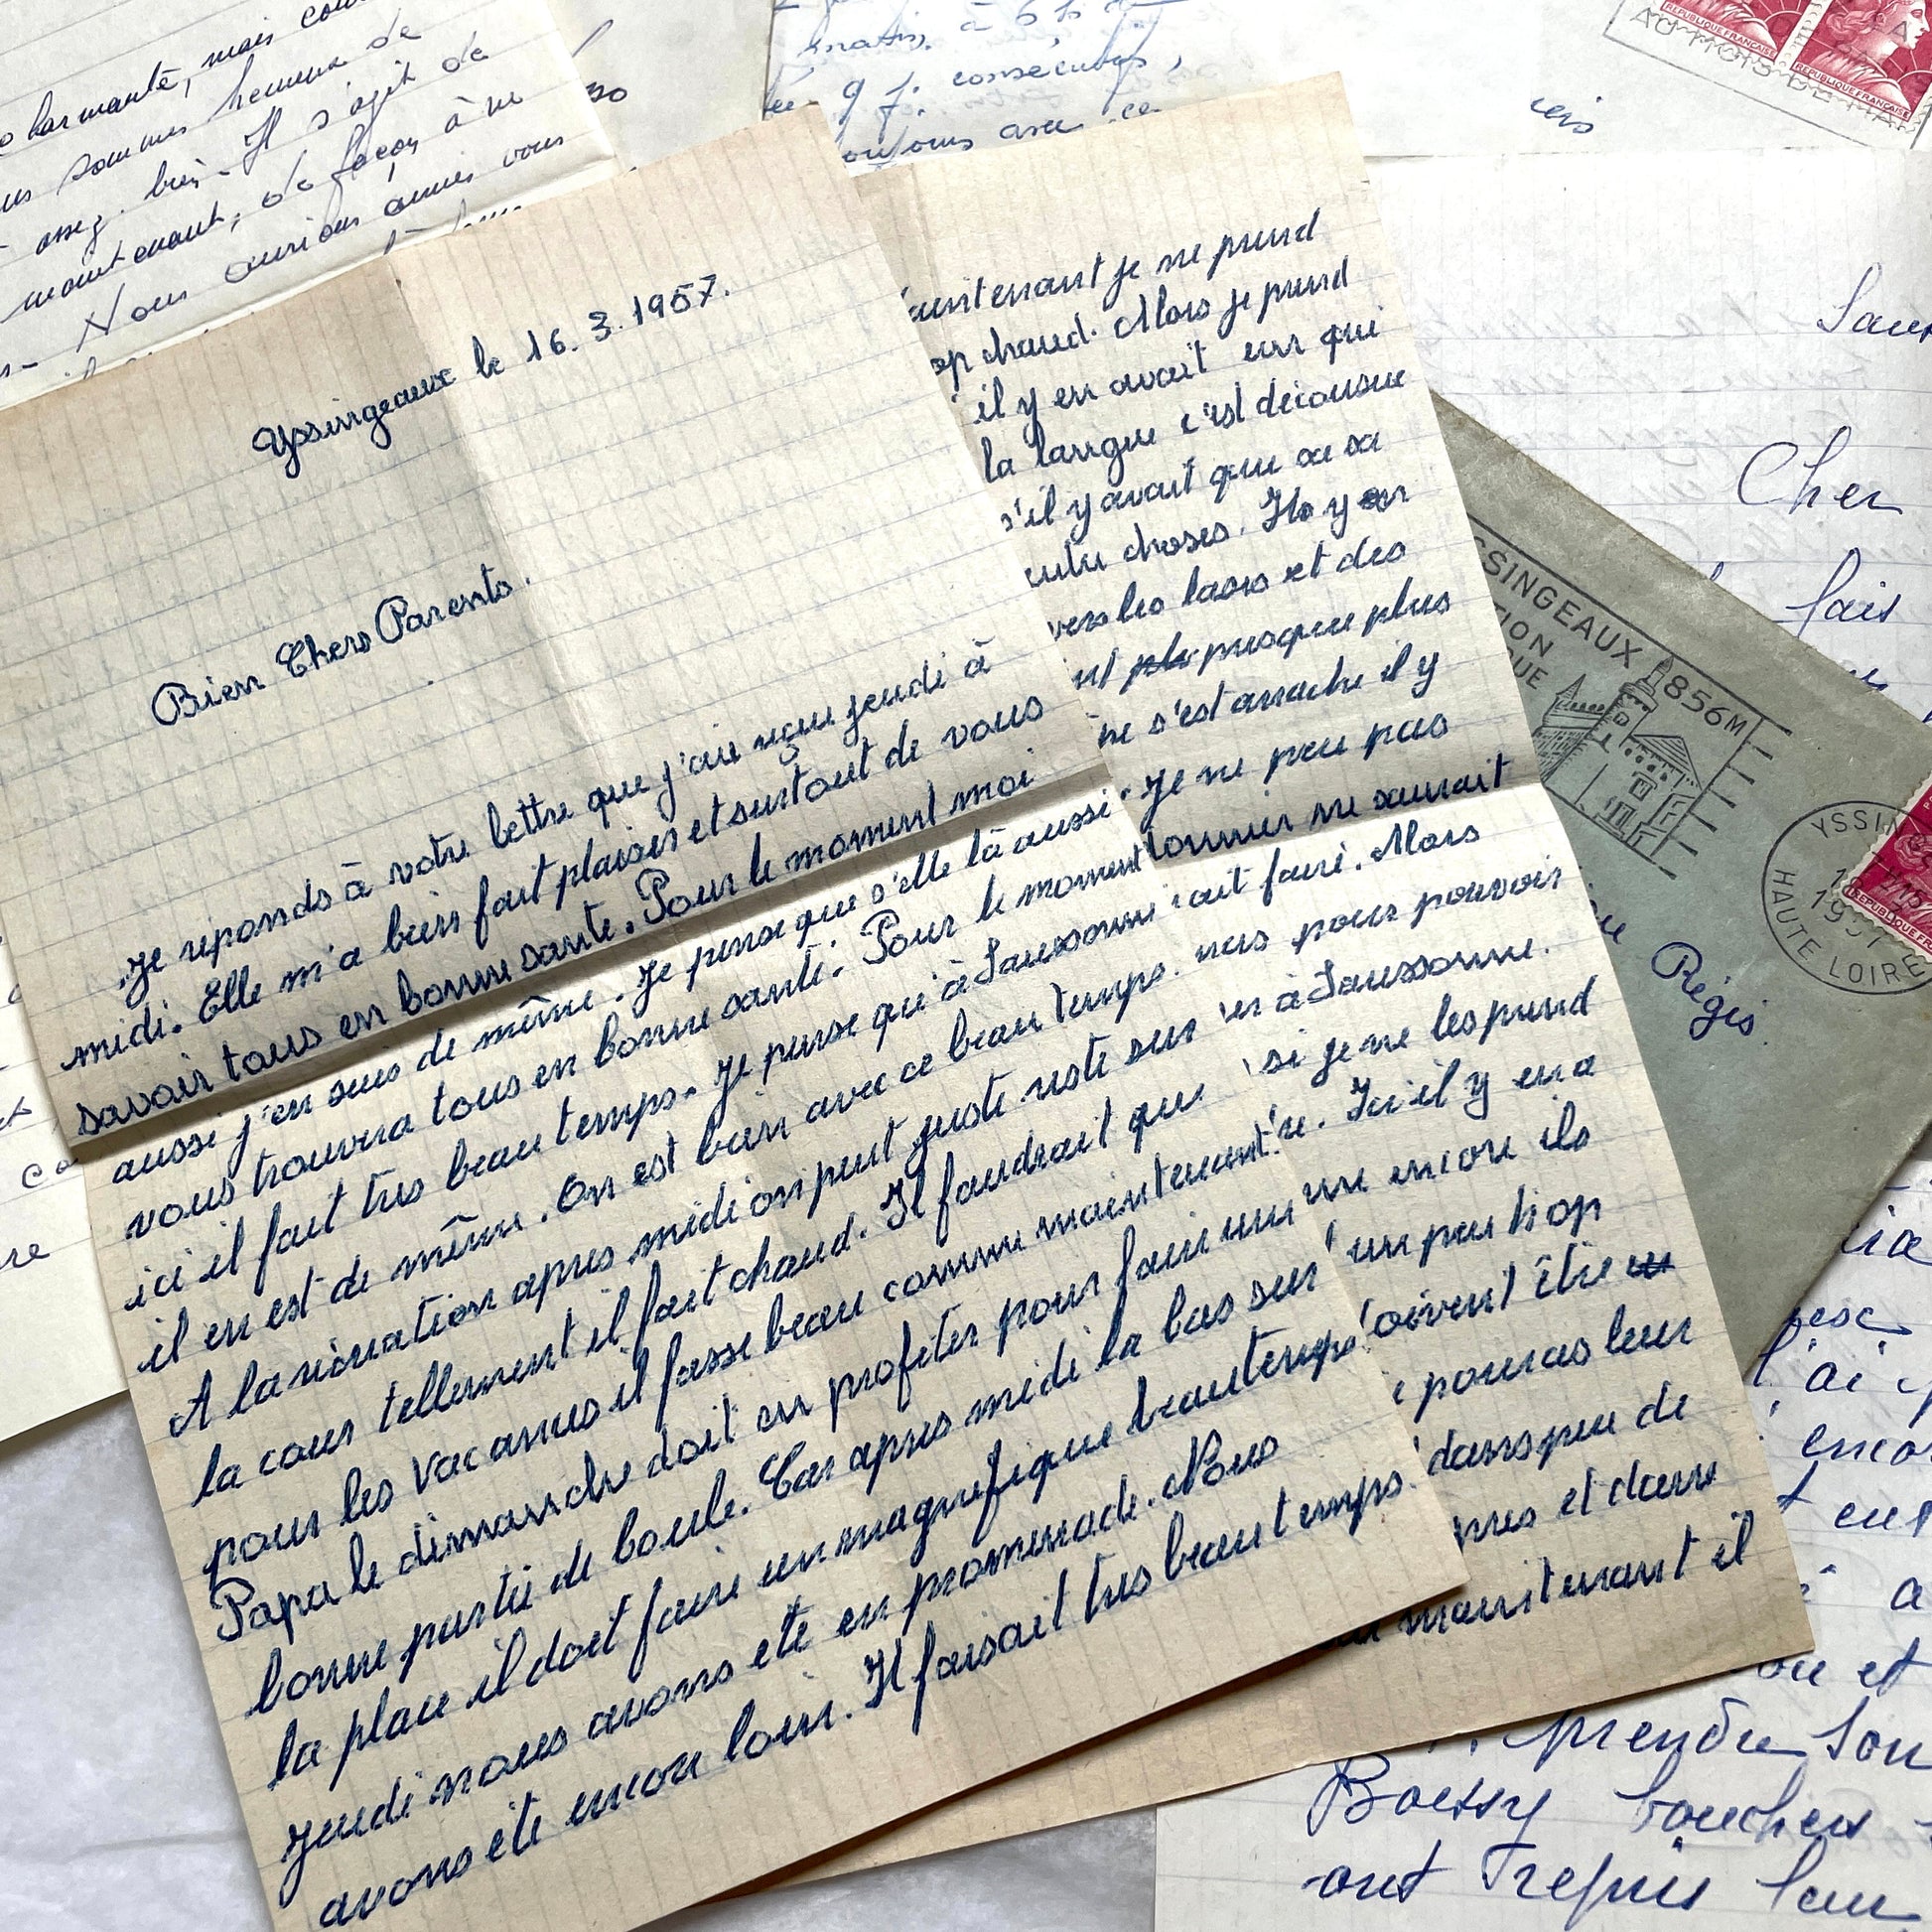 Yssingeaux le 16.3.1957.
Bien Chers Parents.
Je réponds à votre lettre que j'aie reçue jeudi à
midi. Elle m'a bien fait plaisir et surtout de vous
savoir tous en bonne santé. Pour le moment moi
aussi j'en suis de même. Je pense que s'elle là aussi
vous trouvera tous en bonne santé. Pour le moment
ici il fait très beau temps. Je pense qu'à Saussonne
il en est de même. On est bien avec ce beau temps.
A la récréation après midi on peut juste reste sur
la cour tellement il fait chaud. Il faudrait que
pour les vacances il fasse beau comme maintenant.
Papa le dimanche doit en profiter pour faire une
bonne partie de boule. Car après midi la bas sur
la place il doit faire un magnifique beau temps
jeudi nous avons été en promenade. Nous
avons été encore loin. Il faisait très beau temps.
maintenant je ne prend
op chaud. Alors je prend
il y en avait un qui
la langue c'est décousue
s'il y avait que sa sa
choses. Ils y en
vers les lassos et des
nt presque plus
ne s'est arraché il y
. Je ne peu pas
donnier ne saurait
ait faire. Alors
nes pour pouvoir
er à Saussonne.
si je ne les prend
re. Ici il y en a
une encore ils
un peu trop
oivent être
pouras leur
dans peu de
nes et dans
maintenant il
charmante, mais
sommes heureux de
assez bien. Il s'agit de
maintenant, de façon à ne
Nous aurions aimés vous
30
matin, à 6 h
9 j. consécutifs,
toujours avec ce
REPUBLIQUE FRANÇAISE
REPUBLIQUE FRANÇAISE
Cher
fais
SSINGEAUX 856M
TION
QUE
YSSIN
HAUTE LOIRE
REPUBLIQUE FR
Régis
l'ai
enco
et
prendre son
Boessy boucher
ont repris leur